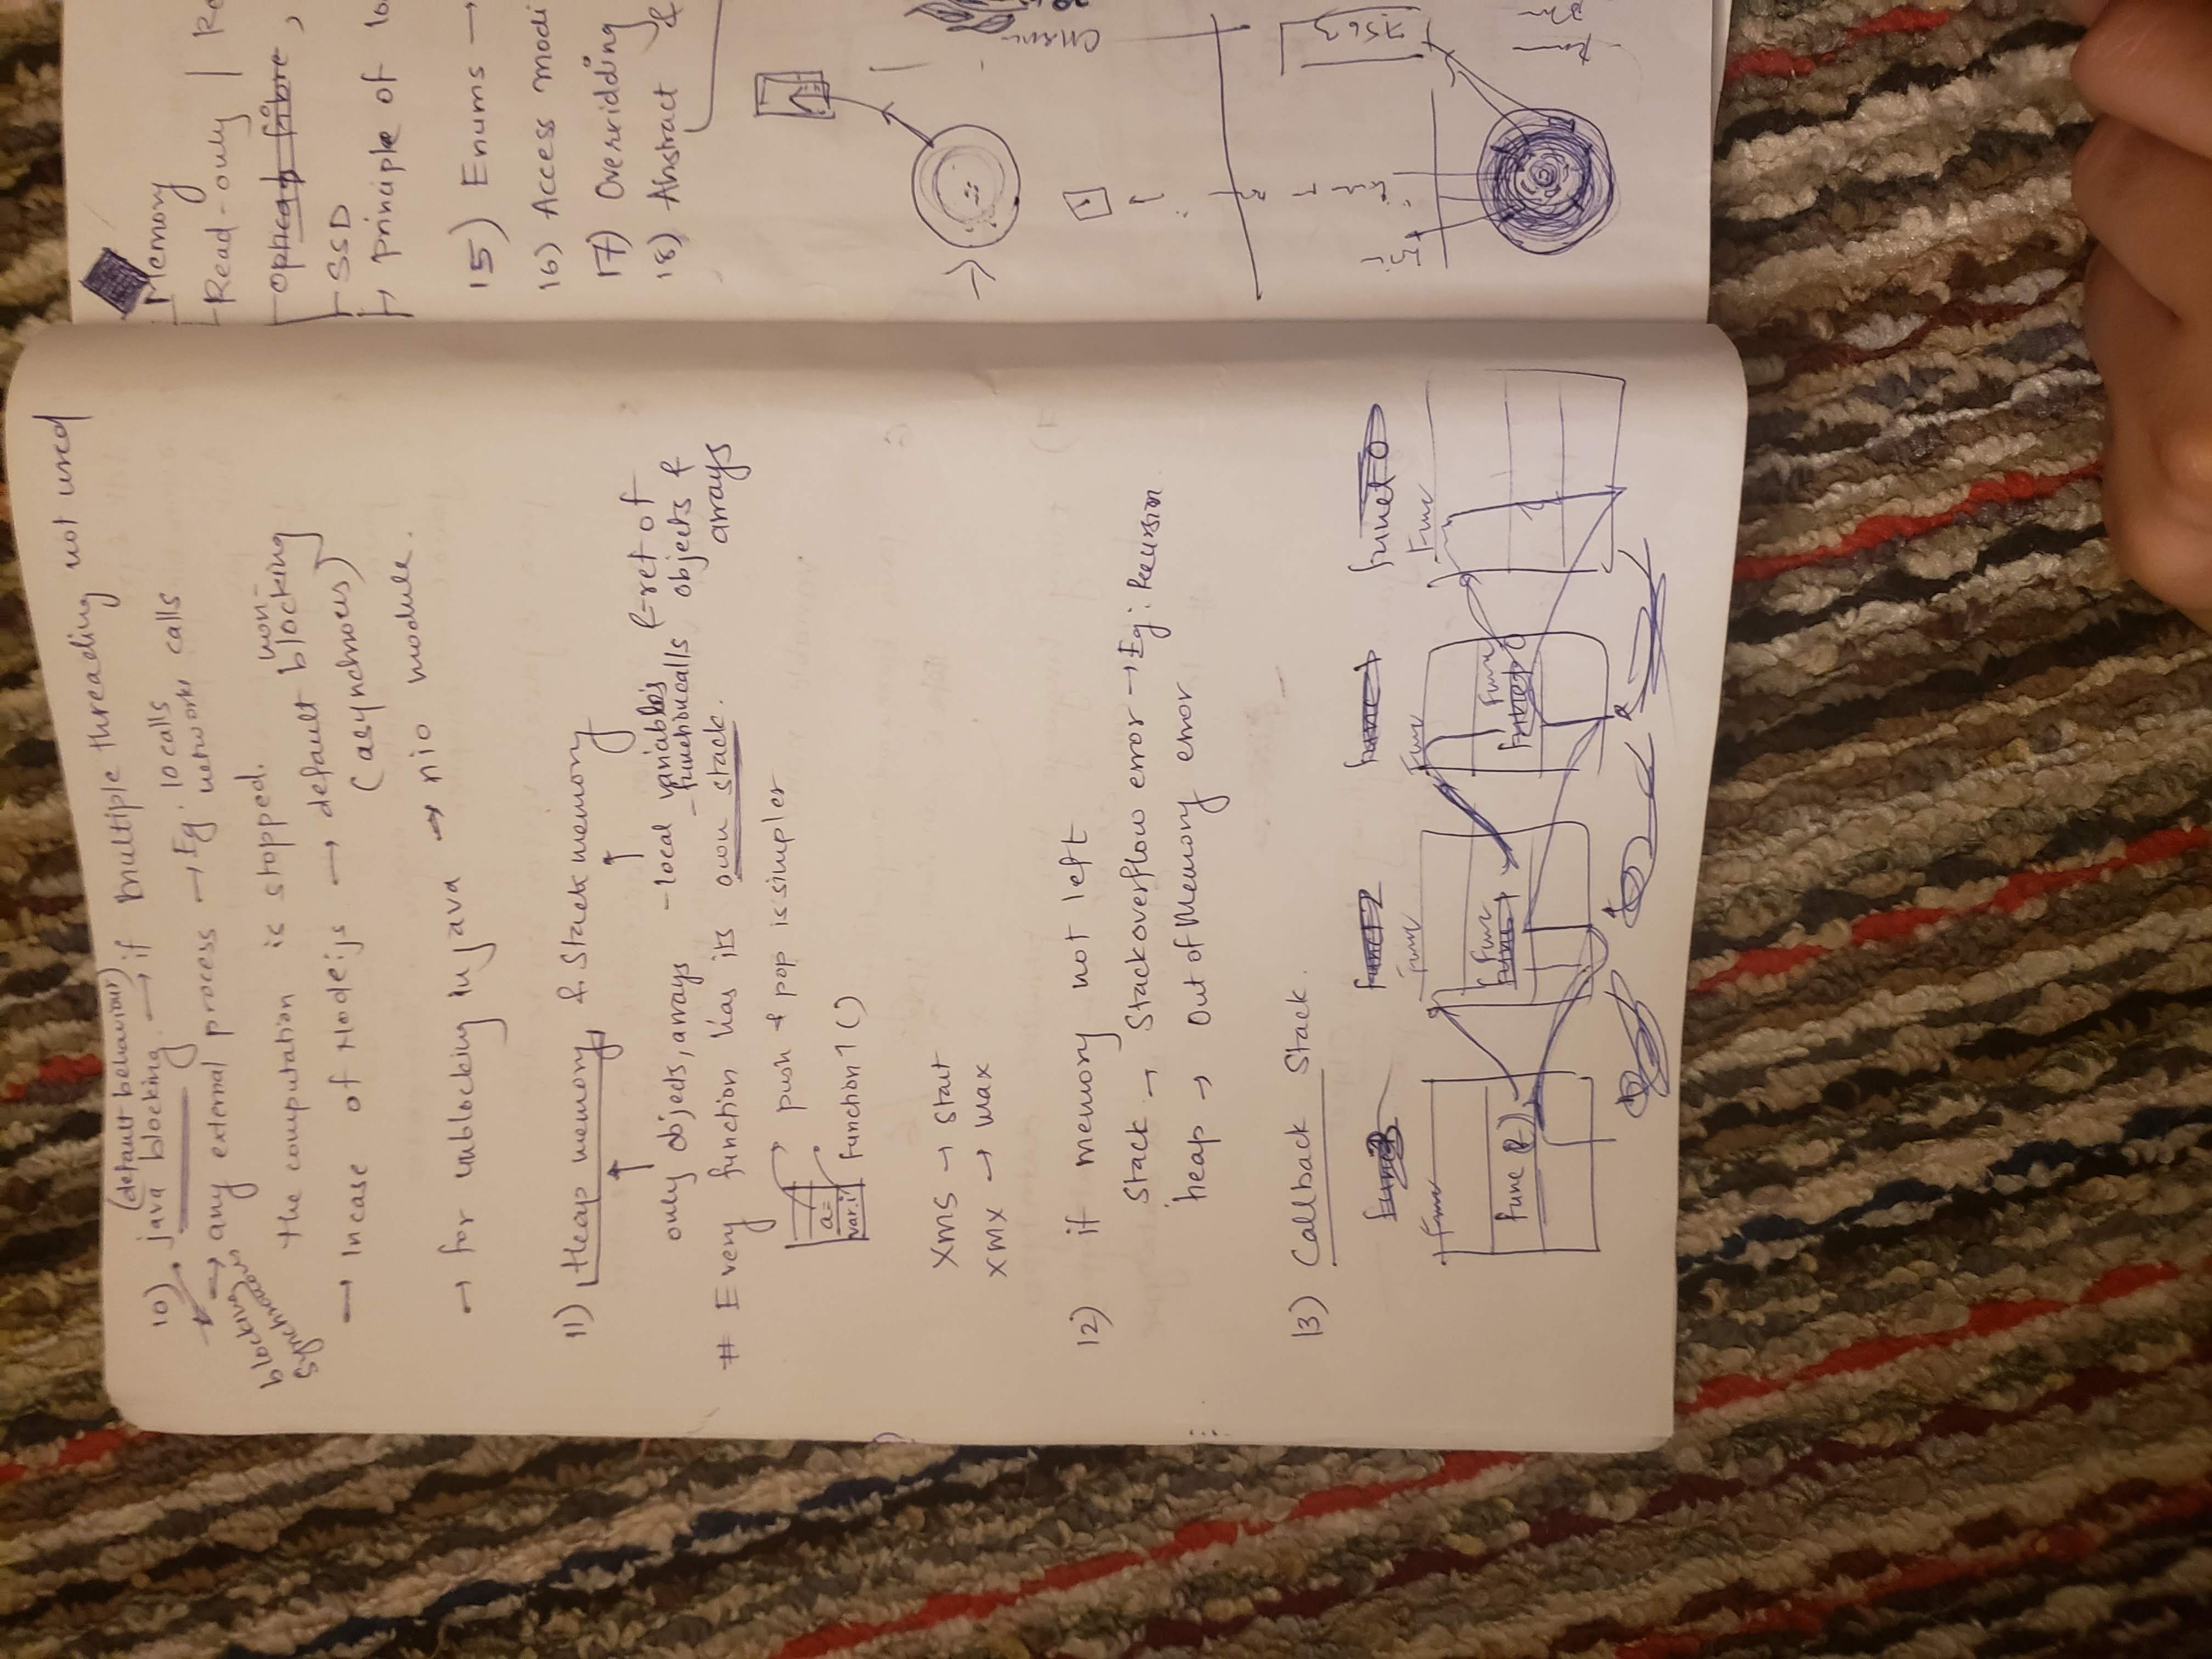 (default behaviour)
10) java blocking → if multiple threading not used
blocking
Synchronous
→ any external process → Eg. IO calls
networks calls
the computation is stopped.
→ Incase of Node.js → default non-blocking
(asynchnous)
→ for unblocking in java → nio module.
11) Heap memory & Stack memory
only objects, arrays
- local variables & ref of
- function calls objects &
arrays
# Every function has its own stack.
push & pop is simpler
a=
var.i
function 1 ()
XMS → Start
XMX → Max
12) if memory not left
Stack → Stackoverflow error → Eg: Recursion
heap → Out of Memory error
13) Callback Stack.
funct2 funct1 funct0
Func Func Func Func
Func Func
func(2)
Memory
Read-only |
Optical fibre,
SSD
Principle of lo
15) Enums →
16) Access modi
17) Overridding
18) Abstract &
7563